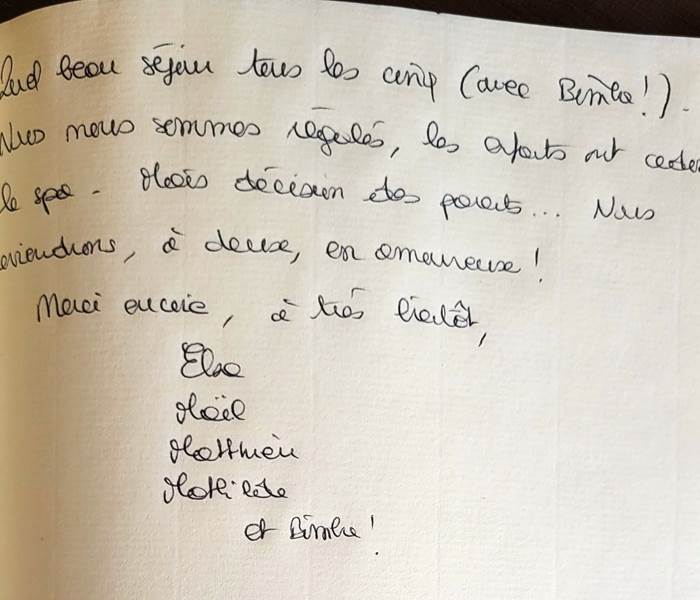 Quel beau séjour tous les cinq (avec Bimba!).
Nous nous sommes régalés, les enfants ont
le spa - Mais décision des parents... Nous
eviendrons, à deux, en amoureux !
Merci encore, à très bientôt,
Elsa
Maël
Matthieu
Mathilde
et Bimba!